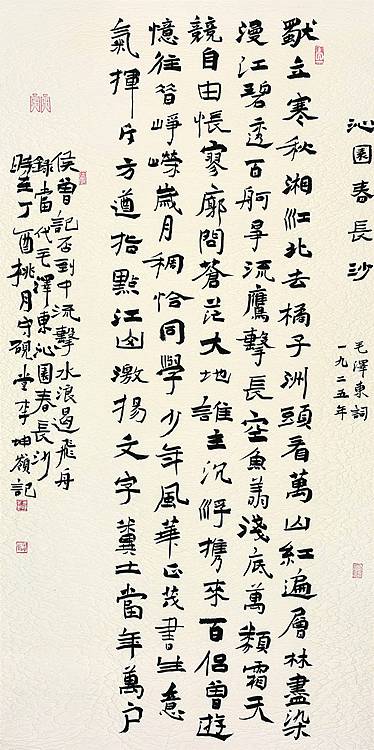 沁園春長沙
毛澤東詞
一九二五年
獨立寒秋湘江北去橘子洲頭看萬山紅遍層林盡染
漫江碧透百舸爭流鷹擊長空魚翔淺底萬類霜天
競自由悵寥廓問蒼茫大地誰主沉浮携來百侶曾遊
憶往昔崢嶸歲月稠恰同學少年風華正茂書生意
氣揮斥方遒指點江山激揚文字糞土當年萬户
侯曾記否到中流擊水浪遏飛舟
錄當代毛澤東沁園春長沙
時在丁酉桃月守硯堂李坤嶺記